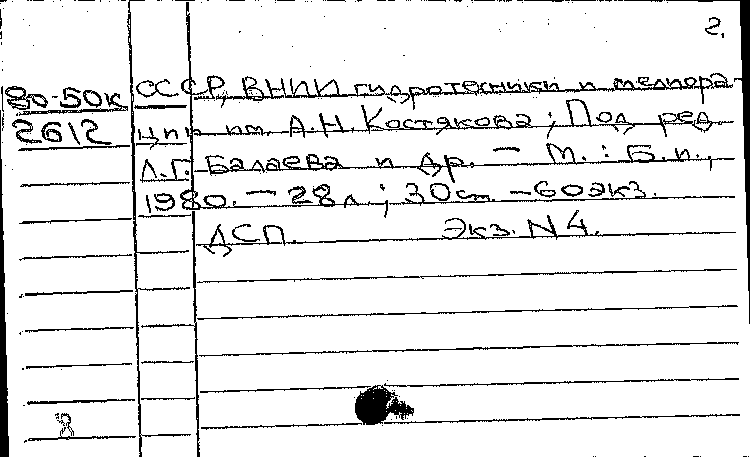 2.
80-50к СССР, ВНИИ гидротехники и мелиора-
2612 ции им. А.Н. Костякова; Под ред.
Л.Г. Балаева и др. — М.: Б.и.,
1980. — 28 л.; 30 см. — 60 экз.
ДСП. Экз. N 4.
8